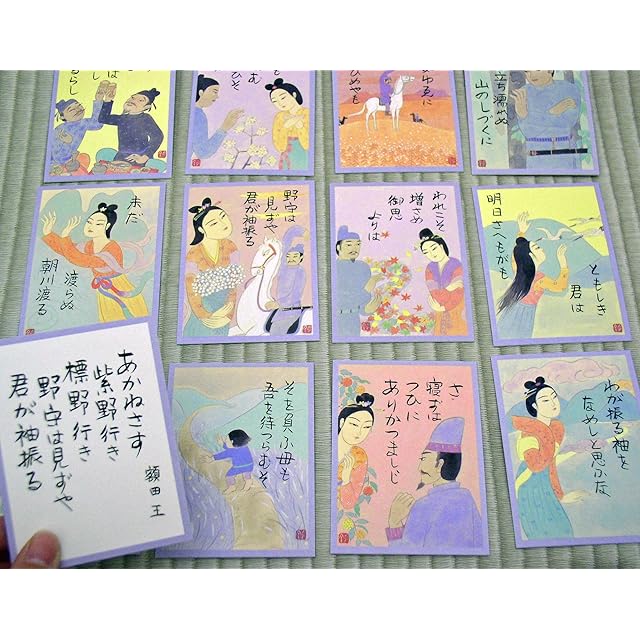 は
し
るらし
む
ひそ
ゆゑに
ひめやも
立ち濡れぬ
山のしづくに
未だ
渡らぬ
朝川渡る
野守は
見ずや
君が袖振る
われこそ
増さめ
御思
よりは
ともしき
君は
明日さへもがも
あかねさす
紫野行き
標野行き
野守は見ずや
君が袖振る
額田王
そを負ふ母も
吾を待つらむそ
さ
寝ずは
つひに
ありかつましじ
わが振る袖を
なめしと思ふな